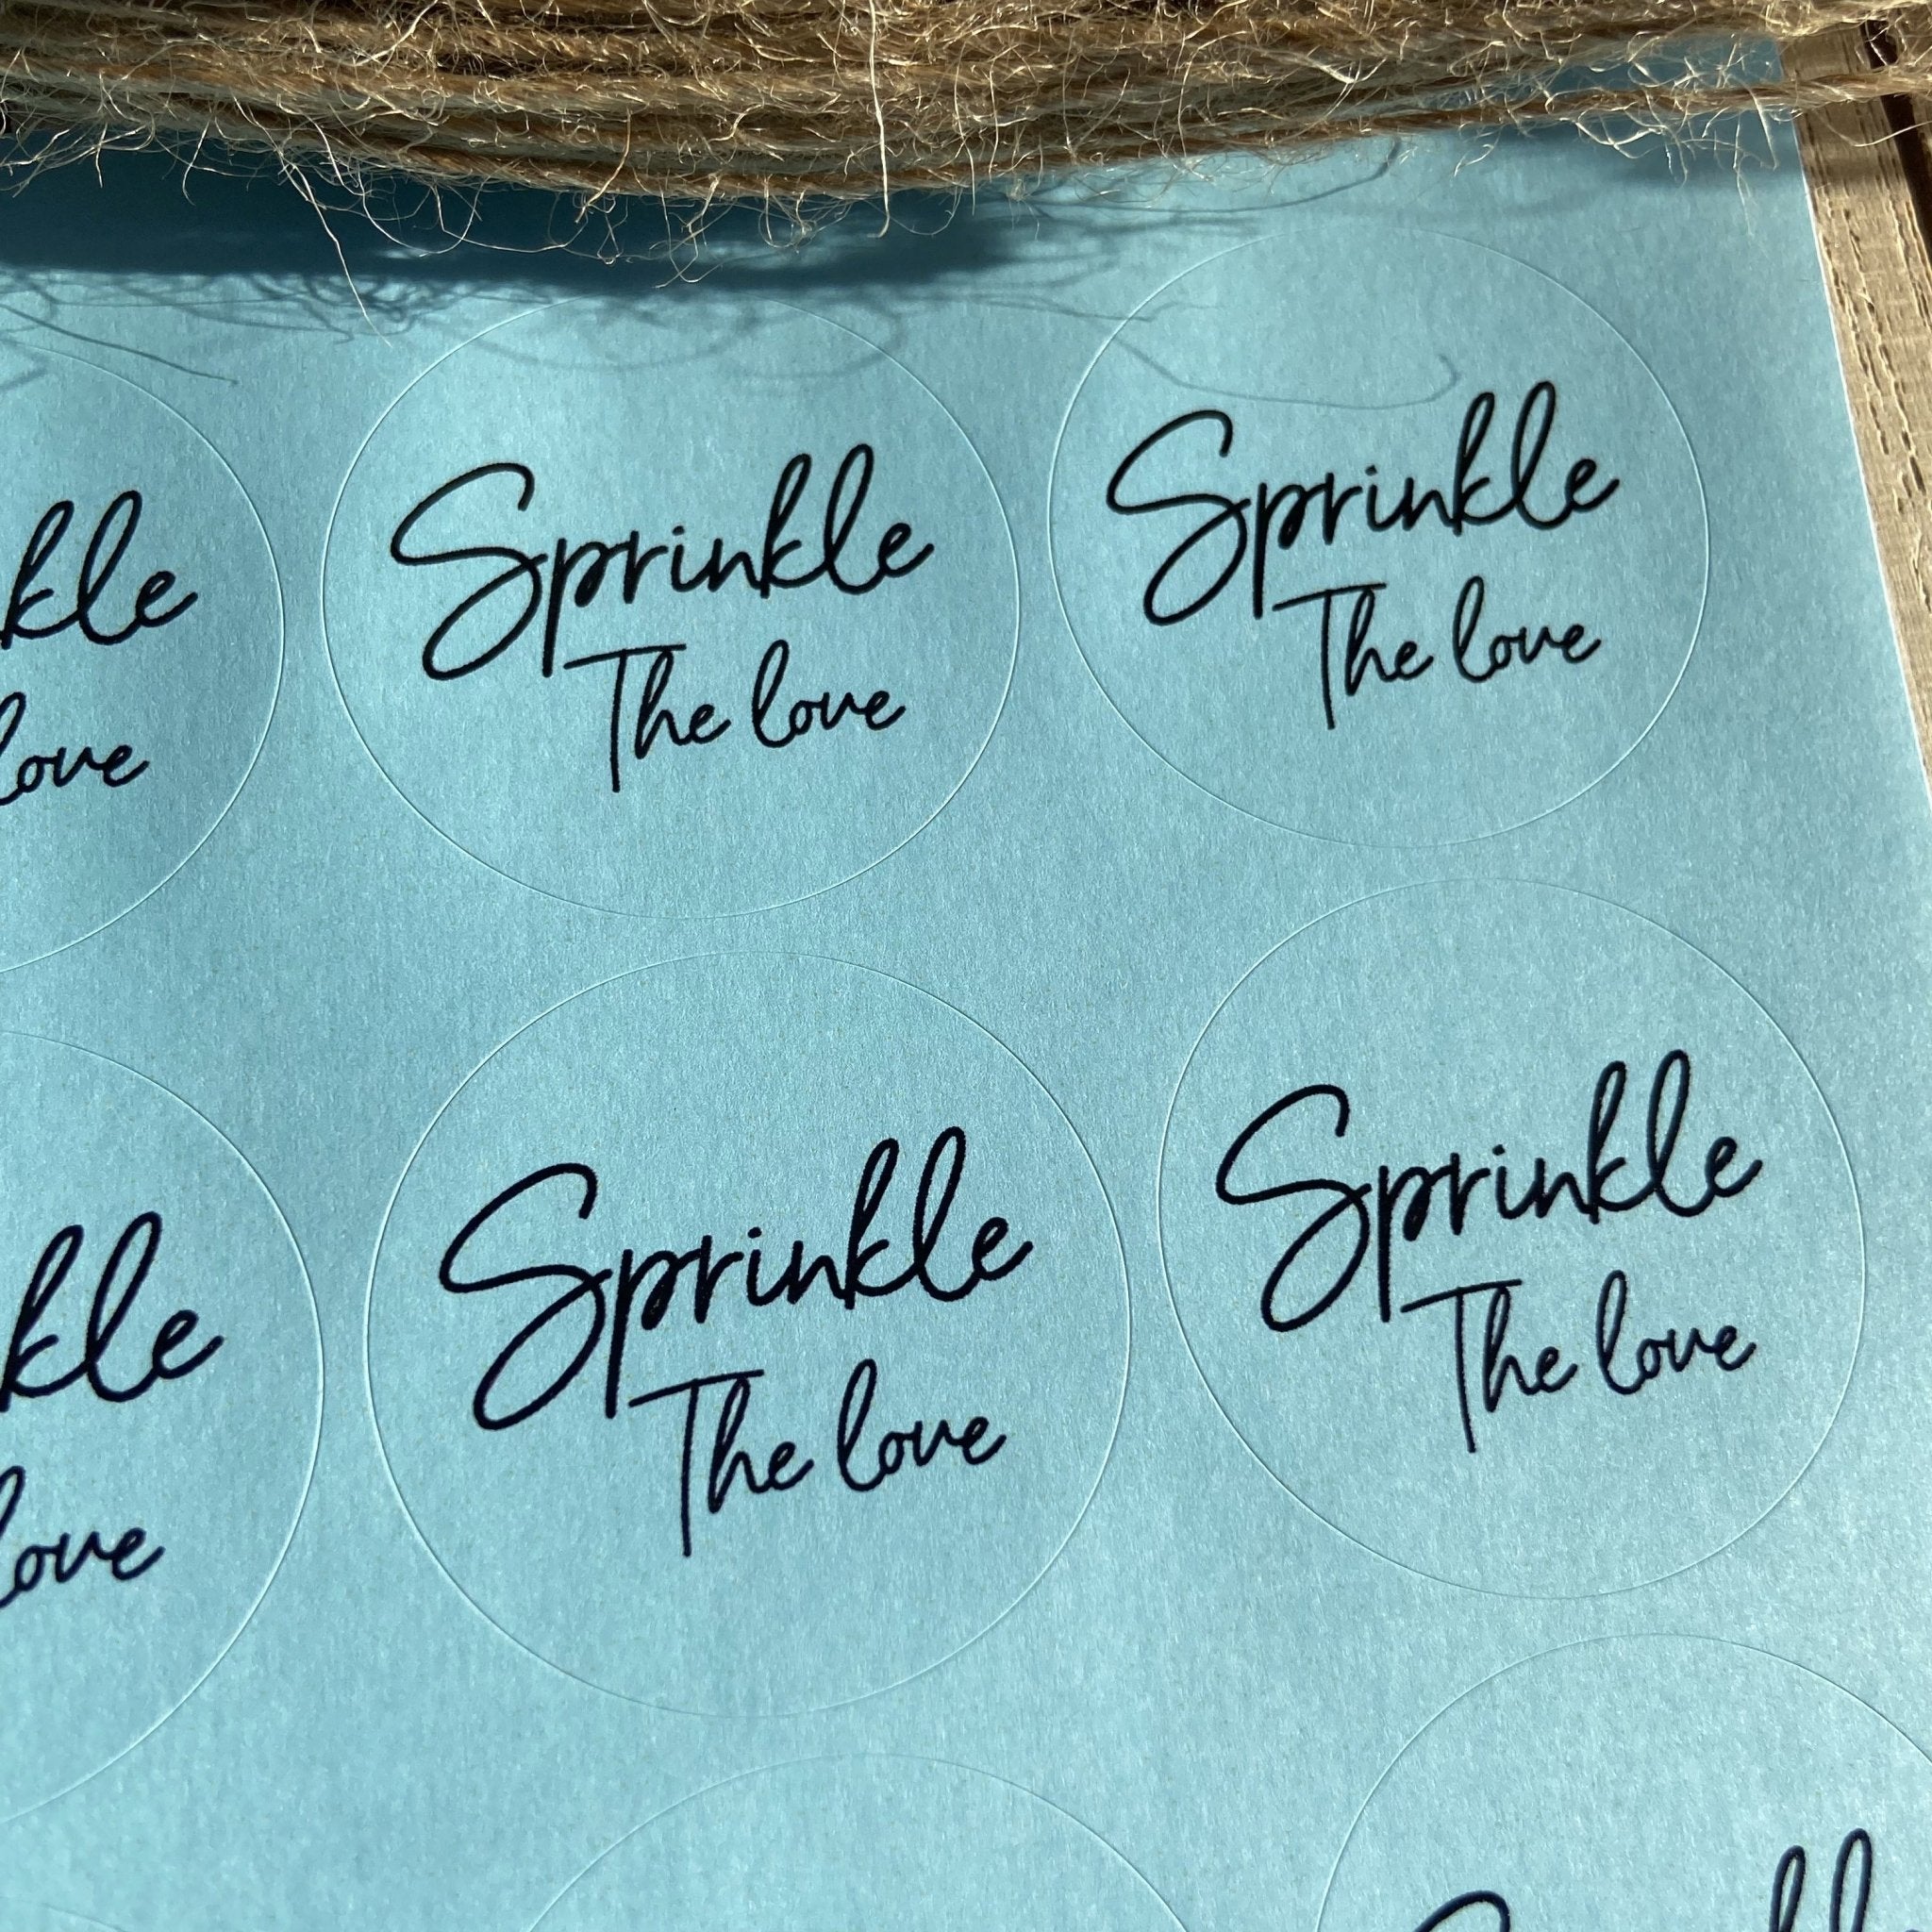 Sprinkle
The love
Sprinkle
The love
kle
love
Sprinkle
The love
Sprinkle
The love
kle
love